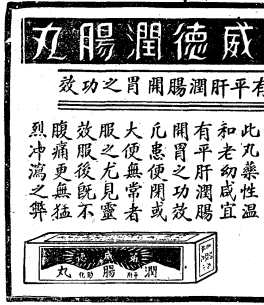 威德潤腸丸
有平肝潤腸開胃之功效
此丸藥性溫
和老幼咸宜
有平肝潤腸
開胃之功效
凡患便閉或
大便無常者
服之尤見靈
效服後既不
腹痛更無猛
烈冲瀉之弊
威德
潤腸丸